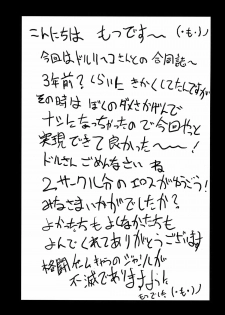 こんにちは もっです〜 (・も・)ノ
今回はドルリヘコさんとの合同誌〜
3年前?くらいに きかくしてたんですが
その時は ぼくのダメさかげんで
ナシになっちゃったので今回やっと
実現できて良かった〜〜!
ドルさん ごめんなさい ね
2サークル分のエロスがわっう!
みなさまいかがでしたか?
よかたちも よしなかたちも
よんでくれてありがとうございます
格闘ゲームキャラのジャンルが
不滅でありますように
もつでした (・も・)ノ